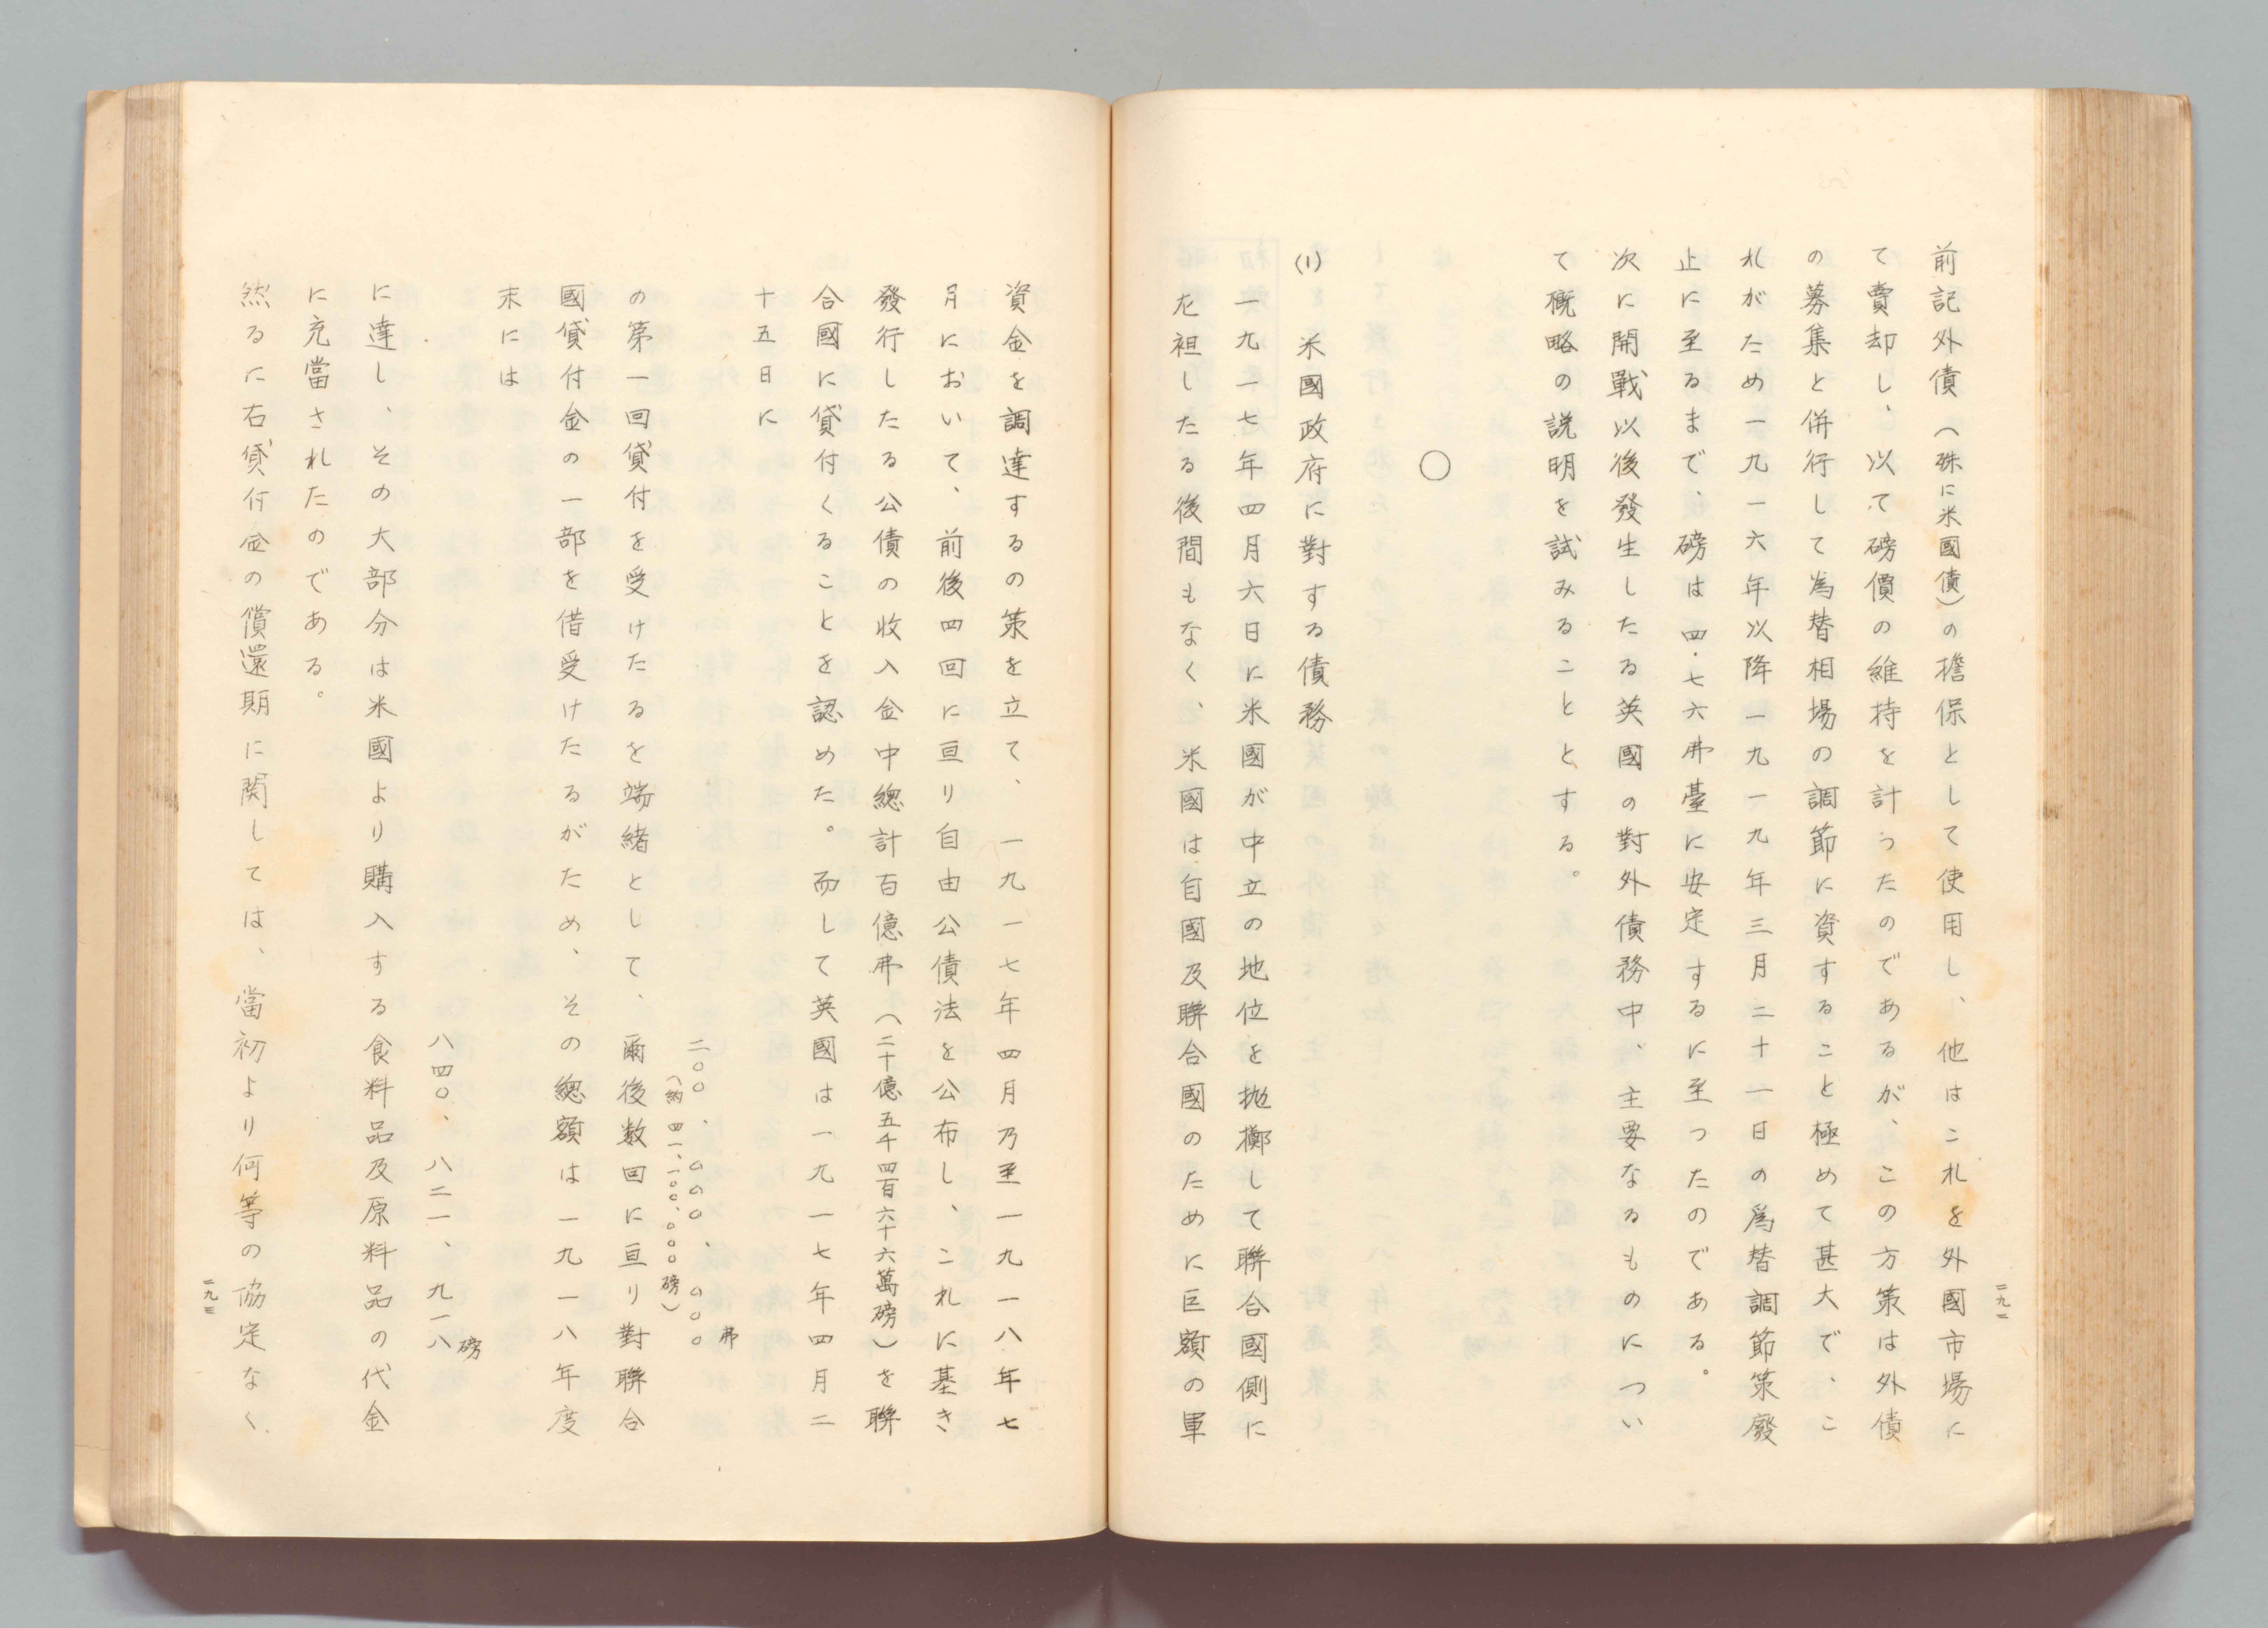 前記外債(殊に米國債)の擔保として使用し、他はこれを外國市場に
て賣却し、以て磅價の維持を計つたのであるが、この方策は外債
の募集と併行して為替相場の調節に資すること極めて甚大で、こ
れがため一九一六年以降一九一九年三月二十一日の為替調節策廢
止に至るまで、磅は四・七六弗臺に安定するに至つたのである。
次に開戰以後發生したる英國の對外債務中、主要なるものについ
て概略の説明を試みることとする。
○
(1) 米國政府に對する債務
一九一七年四月六日に米國が中立の地位を抛擲して聯合國側に
左袒したる後間もなく、米國は自國及聯合國のために巨額の軍
一九一
資金を調達するの策を立て、一九一七年四月乃至一九一八年七
月において、前後四回に亘り自由公債法を公布し、これに基き
發行したる公債の收入金中總計百億弗(二十億五千四百六十六萬磅)を聯
合國に貸付くることを認めた。而して英國は一九一七年四月二
十五日に
二〇〇、〇〇〇、〇〇〇弗
(約四一、一〇〇、〇〇〇磅)
の第一回貸付を受けたるを端緒として、爾後数回に亘り對聯合
國貸付金の一部を借受けたるがため、その總額は一九一八年度
末には
八四〇、八二一、九一八磅
に達し、その大部分は米國より購入する食料品及原料品の代金
に充當されたのである。
然るに右貸付金の償還期に関しては、當初より何等の協定なく